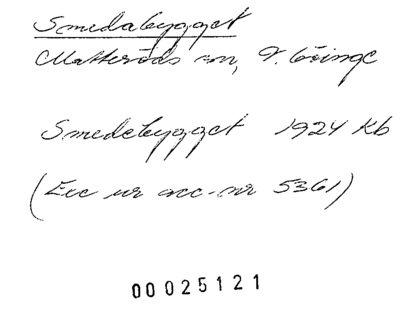 Smedabygget
Matteröds sn, V. Göinge
Smedebygget 1924 Kb
(Exc ur acc.nr 5361)
00025121